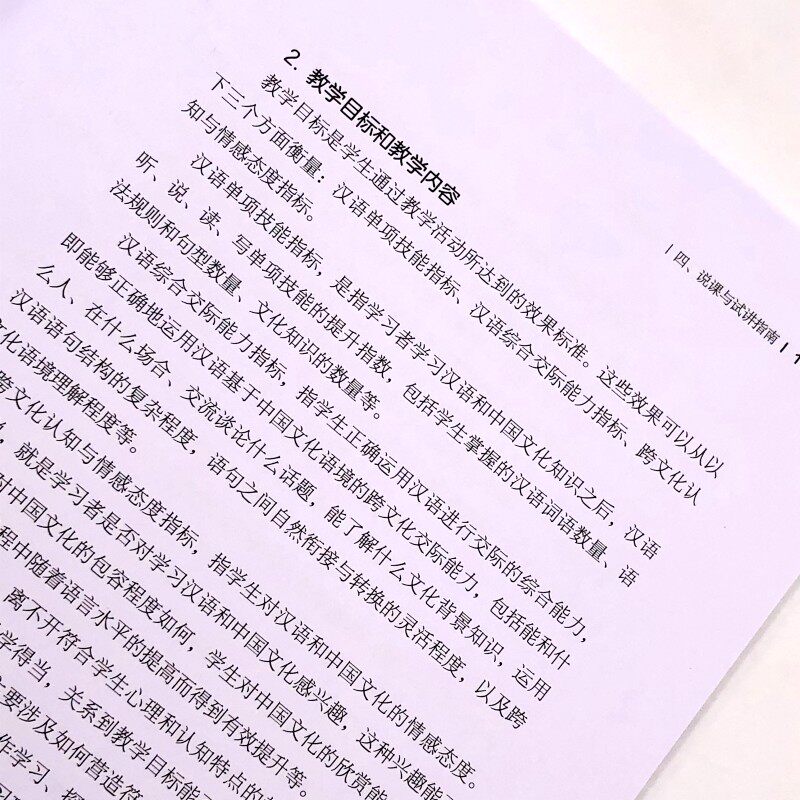 | 四、说课与试讲指南 |
2. 教学目标和教学内容
教学目标是学生通过教学活动所达到的效果标准。这些效果可以从以
下三个方面衡量：汉语单项技能指标、汉语综合交际能力指标、跨文化认
知与情感态度指标。
汉语单项技能指标，是指学习者学习汉语和中国文化知识之后，汉语
听、说、读、写单项技能的提升指数，包括学生掌握的汉语词语数量、语
法规则和句型数量、文化知识的数量等。
汉语综合交际能力指标，指学生正确运用汉语进行交际的综合能力，
即能够正确地运用汉语基于中国文化语境的跨文化交际能力，包括能和什
么人、在什么场合、交流谈论什么话题，能了解什么文化背景知识，运用
汉语语句结构的复杂程度，语句之间自然衔接与转换的灵活程度，以及跨
文化语境理解程度等。
跨文化认知与情感态度指标，指学生对汉语和中国文化的情感态度。
就是学习者是否对学习汉语和中国文化感兴趣，这种兴趣能
对中国文化的包容程度如何，学生对中国文化的欣赏能
程中随着语言水平的提高而得到有效提升等。
离不开符合学生心理和认知特点的
学得当，关系到教学目标能
要涉及如何营造符
作学习、探